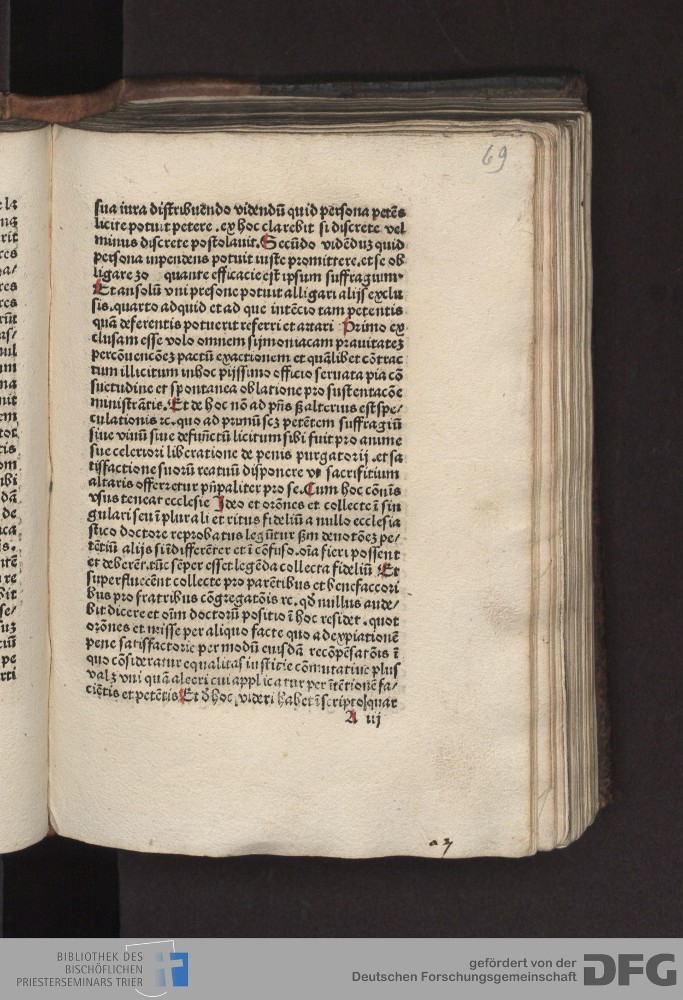 69
sua iura distribuēdo videndū quid persona petēs
licite potuit petere .ex hoc clarebit si discrete vel
minus discrete postolauit. Secūdo vidēduꝫ quid
persona inpendens potuit iuste promittere. et se ob
ligare 3o quante efficacie est ipsum suffragium.
Et an solū vni presone potuit alligari alijs exclu
sis. quarto ad quid et ad que intēcio tam petentis
quā deferentis potuerit referri et artari Primo ex
clusam esse volo omnem symoniacam prauitateꝫ
percōuencōeꝫ pactū exactionem et quālibet cōtrac
tum illicitum in hoc pijssimo officio seruata pia cō
suetudine et spontanea oblatione pro sustentacōe
ministrātis. Et de hoc nō ad pn̄s ꝫ alterius est spe/
culationis ꝛc. quo ad primū scꝫ petētem suffragiū
siue viuū siue defunctū licitum sibi fuit pro anime
sue celeriori liberatione de penis purgatorij .et sa
tisfactione suorū reatuū disponere vt sacrifitium
altaris offerretur pn̄paliter pro se. Cum hoc cōnis
vsus teneat ecclesie Ideo et orōnes et collecte ī sin
gulari seu ī plurali et ritus fideliū a nullo ecclesia
stico doctore reprobatus legūtur ꝫm deuotōeꝫ pe/
tētiū alijs si īdifferēter et ī cōfuso. oīa fieri possent
et deberēt. tūc sēper esset legēda collecta fideliū Et
superfluerēnt collecte pro parētibus et benefaccori
bus pro fratribus cōgregatōis ꝛc. qđ nullus aude/
bit dicere et oīm doctorū positio ī hoc residet . quot
orōnes et misse per aliquo facte quo ad expiationē
pene satisfactorie per modū eiusdā recōpēsatōis ī
quo cōsideratur equalitas iusticie cōmutatiue plus
valꝫ vni quā alteri cui applicatur per ītētionē fa/
ciētis et petētis Et đ hoc videri habet ī scripto quar
A iij
a 3
BIBLIOTHEK DES
BISCHÖFLICHEN
PRIESTERSEMINARS TRIER
gefördert von der
Deutschen Forschungsgemeinschaft
DFG